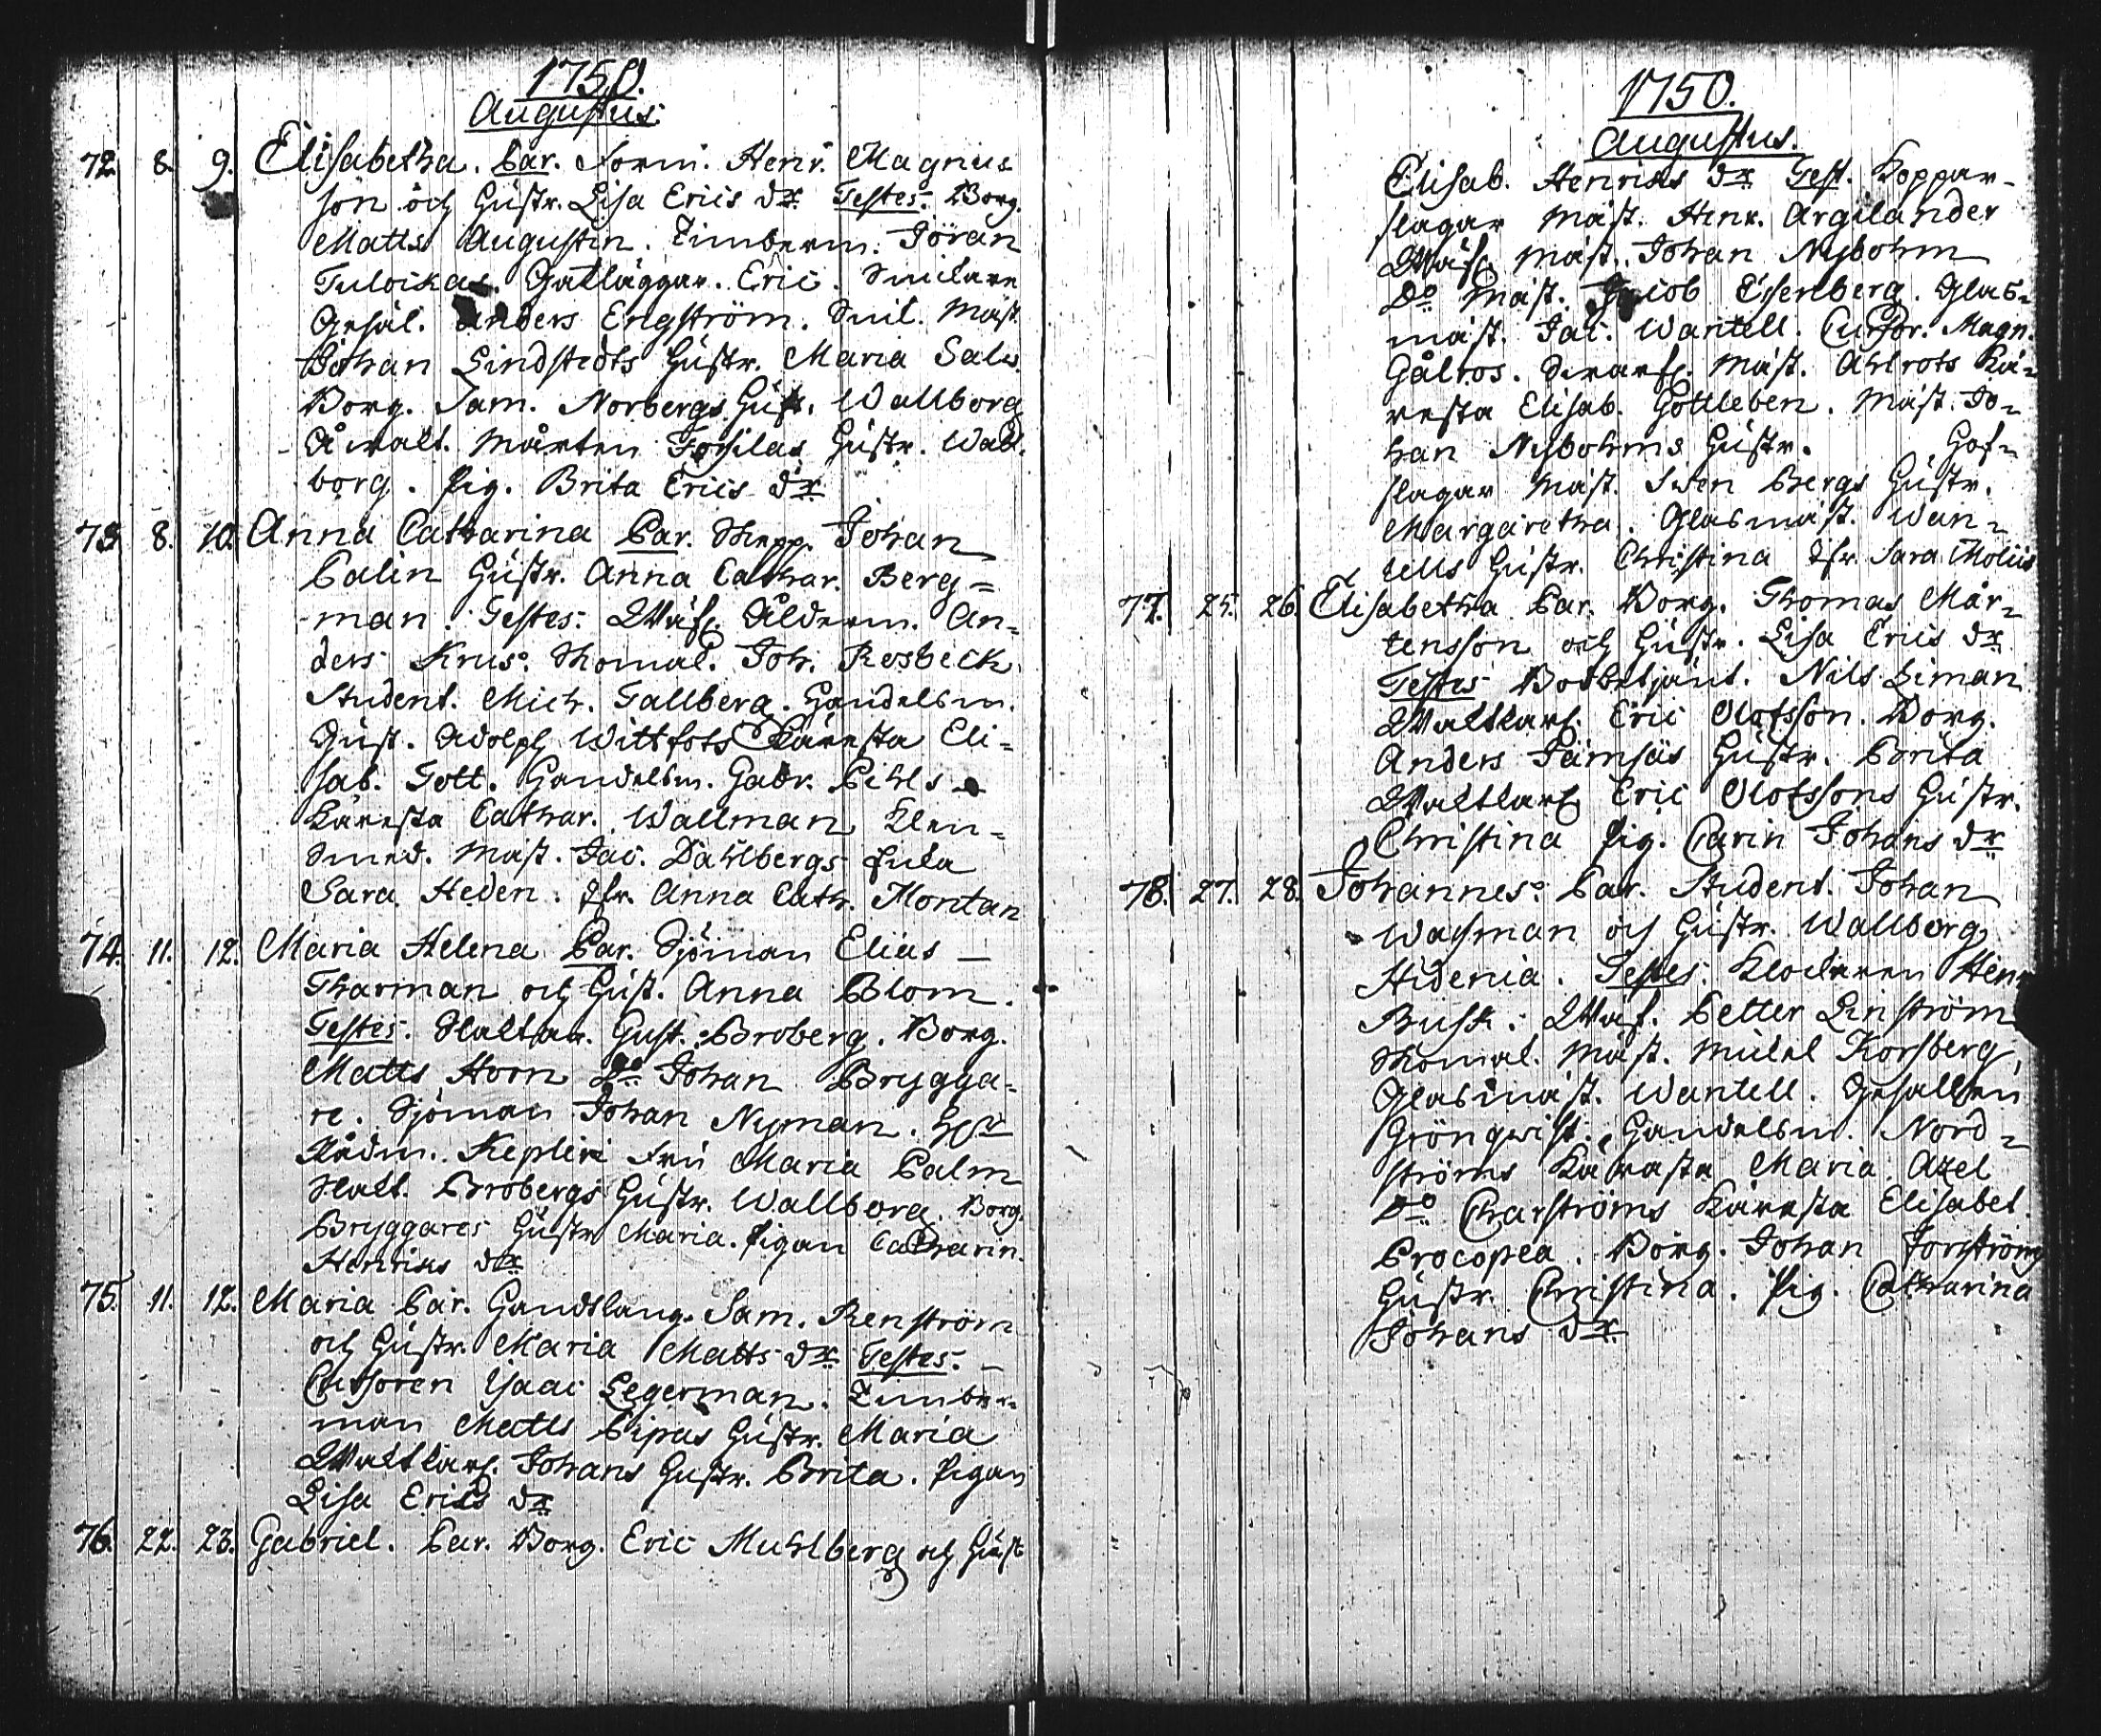 1750.
Augustus.
72. 8. 9. Elisabetha. Par. Form. Henr. Magnus
son och Hustr. Lisa Erics dr. Testes. Borg.
Matts Augustin. Timberm. Jöran
Tuloikas. Gatläggar. Eric.
Gesäl. Anders Engström. Mäst.
Johan Lindstedts Hustr. Maria Salw.
Borg. Sam. Norbergs Hust. Wallborg
Mårten Hustr. Wal-
borg. Pig. Brita Erics dr.
73. 8. 10. Anna Catharina Par. Skepp. Johan
Palin Hustr. Anna Cathar. Berg=
man. Testes: Wäf. Ålderm. An=
ders Krus: Skomak. Joh. Rosbeck.
Student. Mich. Tallberg. Handelsm.
Gust. Adolph Wittfots Käresta Eli=
sab. Tott. Handelsm. Gabr. Pihls
Käresta Cathar. Wallman Klen=
smed. Mäst. Jac. Dahlbergs Enka
Sara Heden. Jfr. Anna Cath. Montan
74. 11. 12. Maria Helena Par. Sjöman Elias
Tharman och Hust. Anna Blom.
Testes. Gust. Broberg. Borg.
Matts Horn Do Johan Brygga=
re. Sjöman Johan Nyman.
Rådm. Kepleri Fru Maria Palm
Brobergs Hustr. Wallborg. Borg.
Bryggares Hustr Maria. Pigan Catharin.
Henriks dr
75. 11. 12. Maria Par. Handtlang. Sam. Renström
och Hustr. Maria Matts dr Testes.
Cursoren Isaac Legerman. Timber-
man Matts Pipus Hustr. Maria
Waktkarl. Johans Hustr. Brita. Pigan
Lisa Erics dr
76. 22. 23. Gabriel. Par. Borg. Eric Muhlberg och Hust
1750.
Augustus.
Elisab. Henriks dr Test. Koppar-
slagar Mäst. Henr. Argilander
Wäf. mäst. Johan Nybohm
Do Mäst. Jacob Eisenberg. Glas-
mäst. Jac. Wantell. Cursor. Magn.
Gålros. Swarf. Mäst. Ahlrots Kä-
resta Elisab. Gottleben. Mäst. Jo-
han Nybohms Hustr. Hof-
slagar Mäst. Swen Bergs Hustr.
Margaretha. Glasmäst. Wan-
tells Hustr. Christina Jfr. Sara Moliis
77. 25. 26. Elisabetha Par. Borg. Thomas Mår-
tensson och Hustr. Lisa Erics dr
Testes Nils Liman
Waktkarl. Eric Olofsson. Borg.
Anders Jämsäs Hustr. Brita
Waktkarl Eric Olofssons Hustr.
Christina Pig. Carin Johans dr
78. 27. 28. Johannes: Par. Student. Johan
Wacsman och Hustr. Wallborg
Hidenia. Testes. Klockaren Henr
Busk. Wäf. Petter Linström
Skomak. Mäst. Mickel Korsberg,
Glasmäst. Wantell. Gesällen
Grönqwist. Handelsm. Nord=
ströms Käresta Maria Azel
Do Charströms Käresta Elisabet.
Procopea. Borg. Johan Forströms
Hustr. Christina. Pig. Catharina
Johans dr